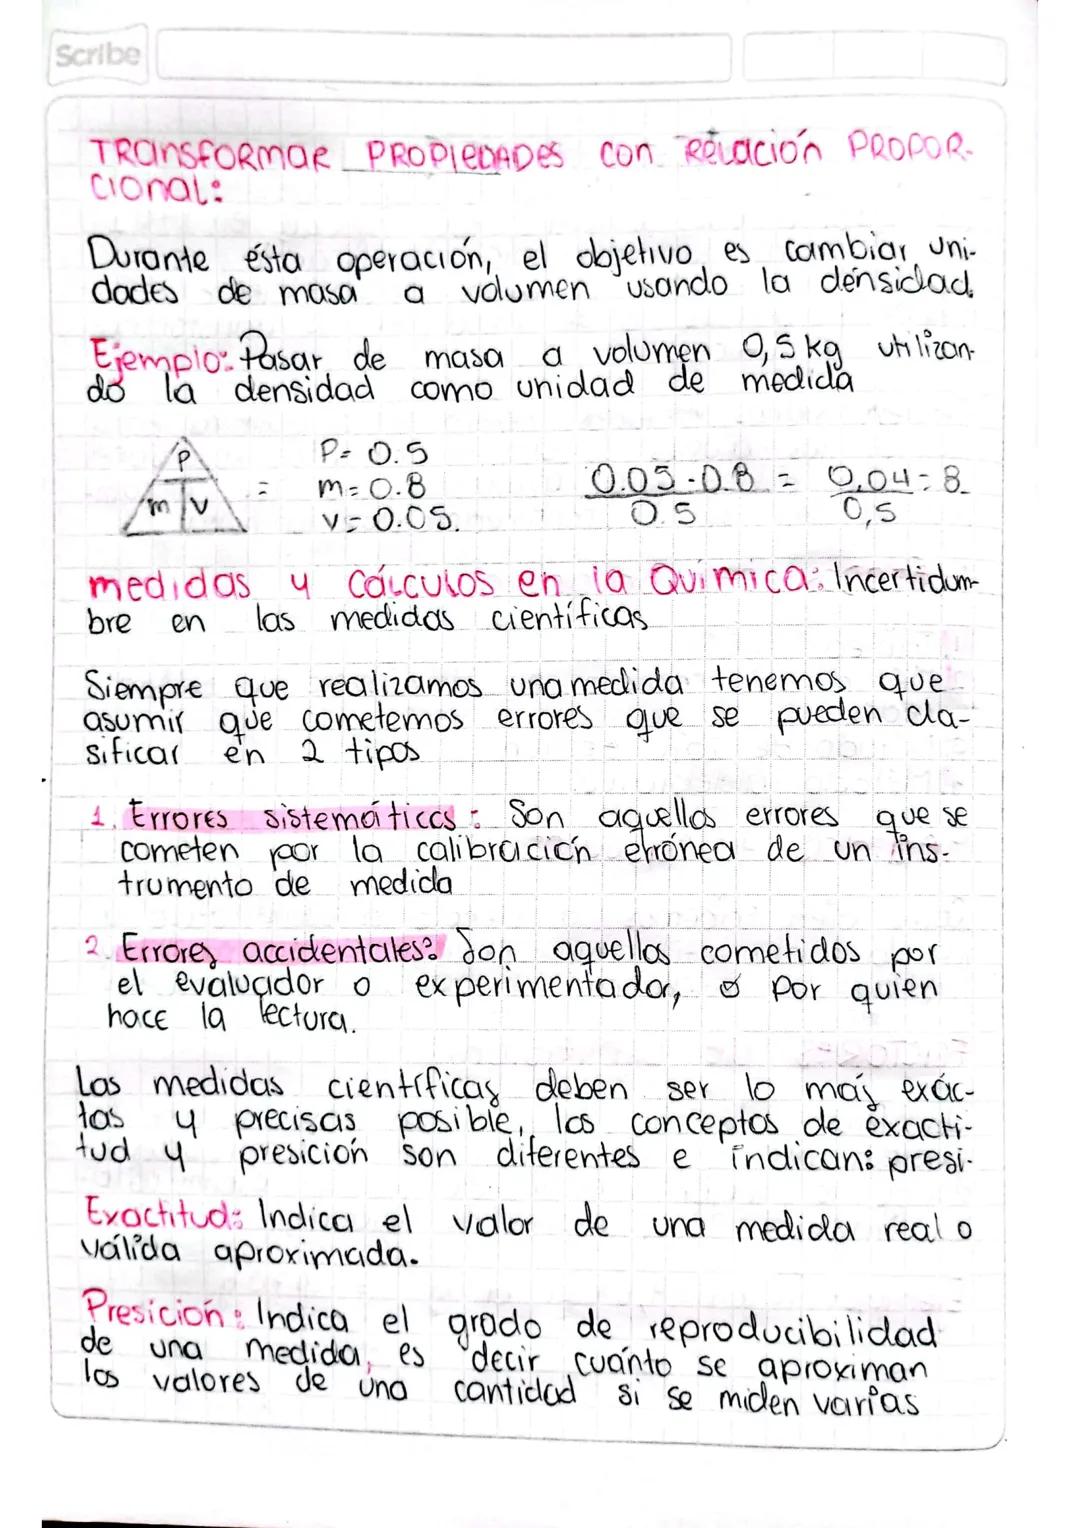 Scribe
TRansFORMAR PROPIEDADES con Relación PROPOR-
cional:
Durante ésta operación, el objetivo es cambiar uni-
dades de masa a volumen usando la densidad.
Ejemplo: Pasar de masa a volumen 0,5 kg utilizan-
do la densidad como unidad de medida
P
m v
=
P= 0.5
m= 0.8
v= 0.05.
0.05-0.8 = 0,04 = 8.
0.5 0,5
medidas y cálculos en la Química: Incertidum-
bre en las medidas científicas
Siempre que realizamos una medida tenemos que
asumir que cometemos errores que se pueden cla-
sificar en 2 tipos
1. Errores sistemáticos: Son aquellos errores que se
cometen por la calibración errónea de un ins-
trumento de medida
2. Errores accidentales: Son aquellos cometidos por
el evaluador o experimentador, o por quien
hace la lectura.
Las medidas científicas deben ser lo más exác-
tas y precisas posible, los conceptos de exacti-
tud y presición son diferentes e indican: presi-
Exactitud: Indica el valor de una medida real o
válida aproximada.
Presición: Indica el grado de reproducibilidad
de una medida, es decir cuánto se aproximan
los valores de una cantidad si se miden varias